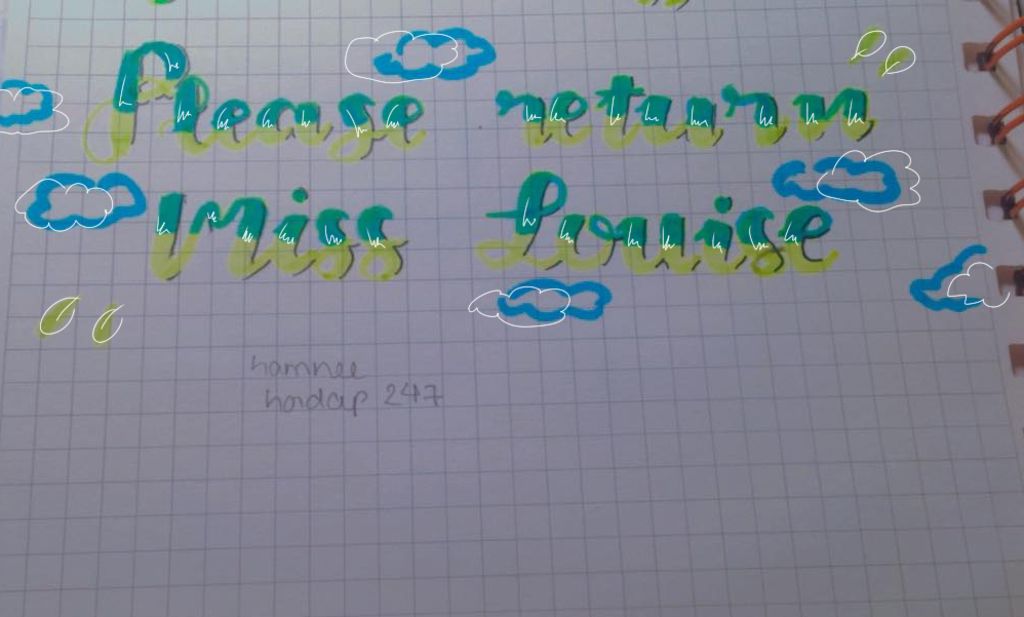 Please return
Miss Louise
hamnee
hordap 247